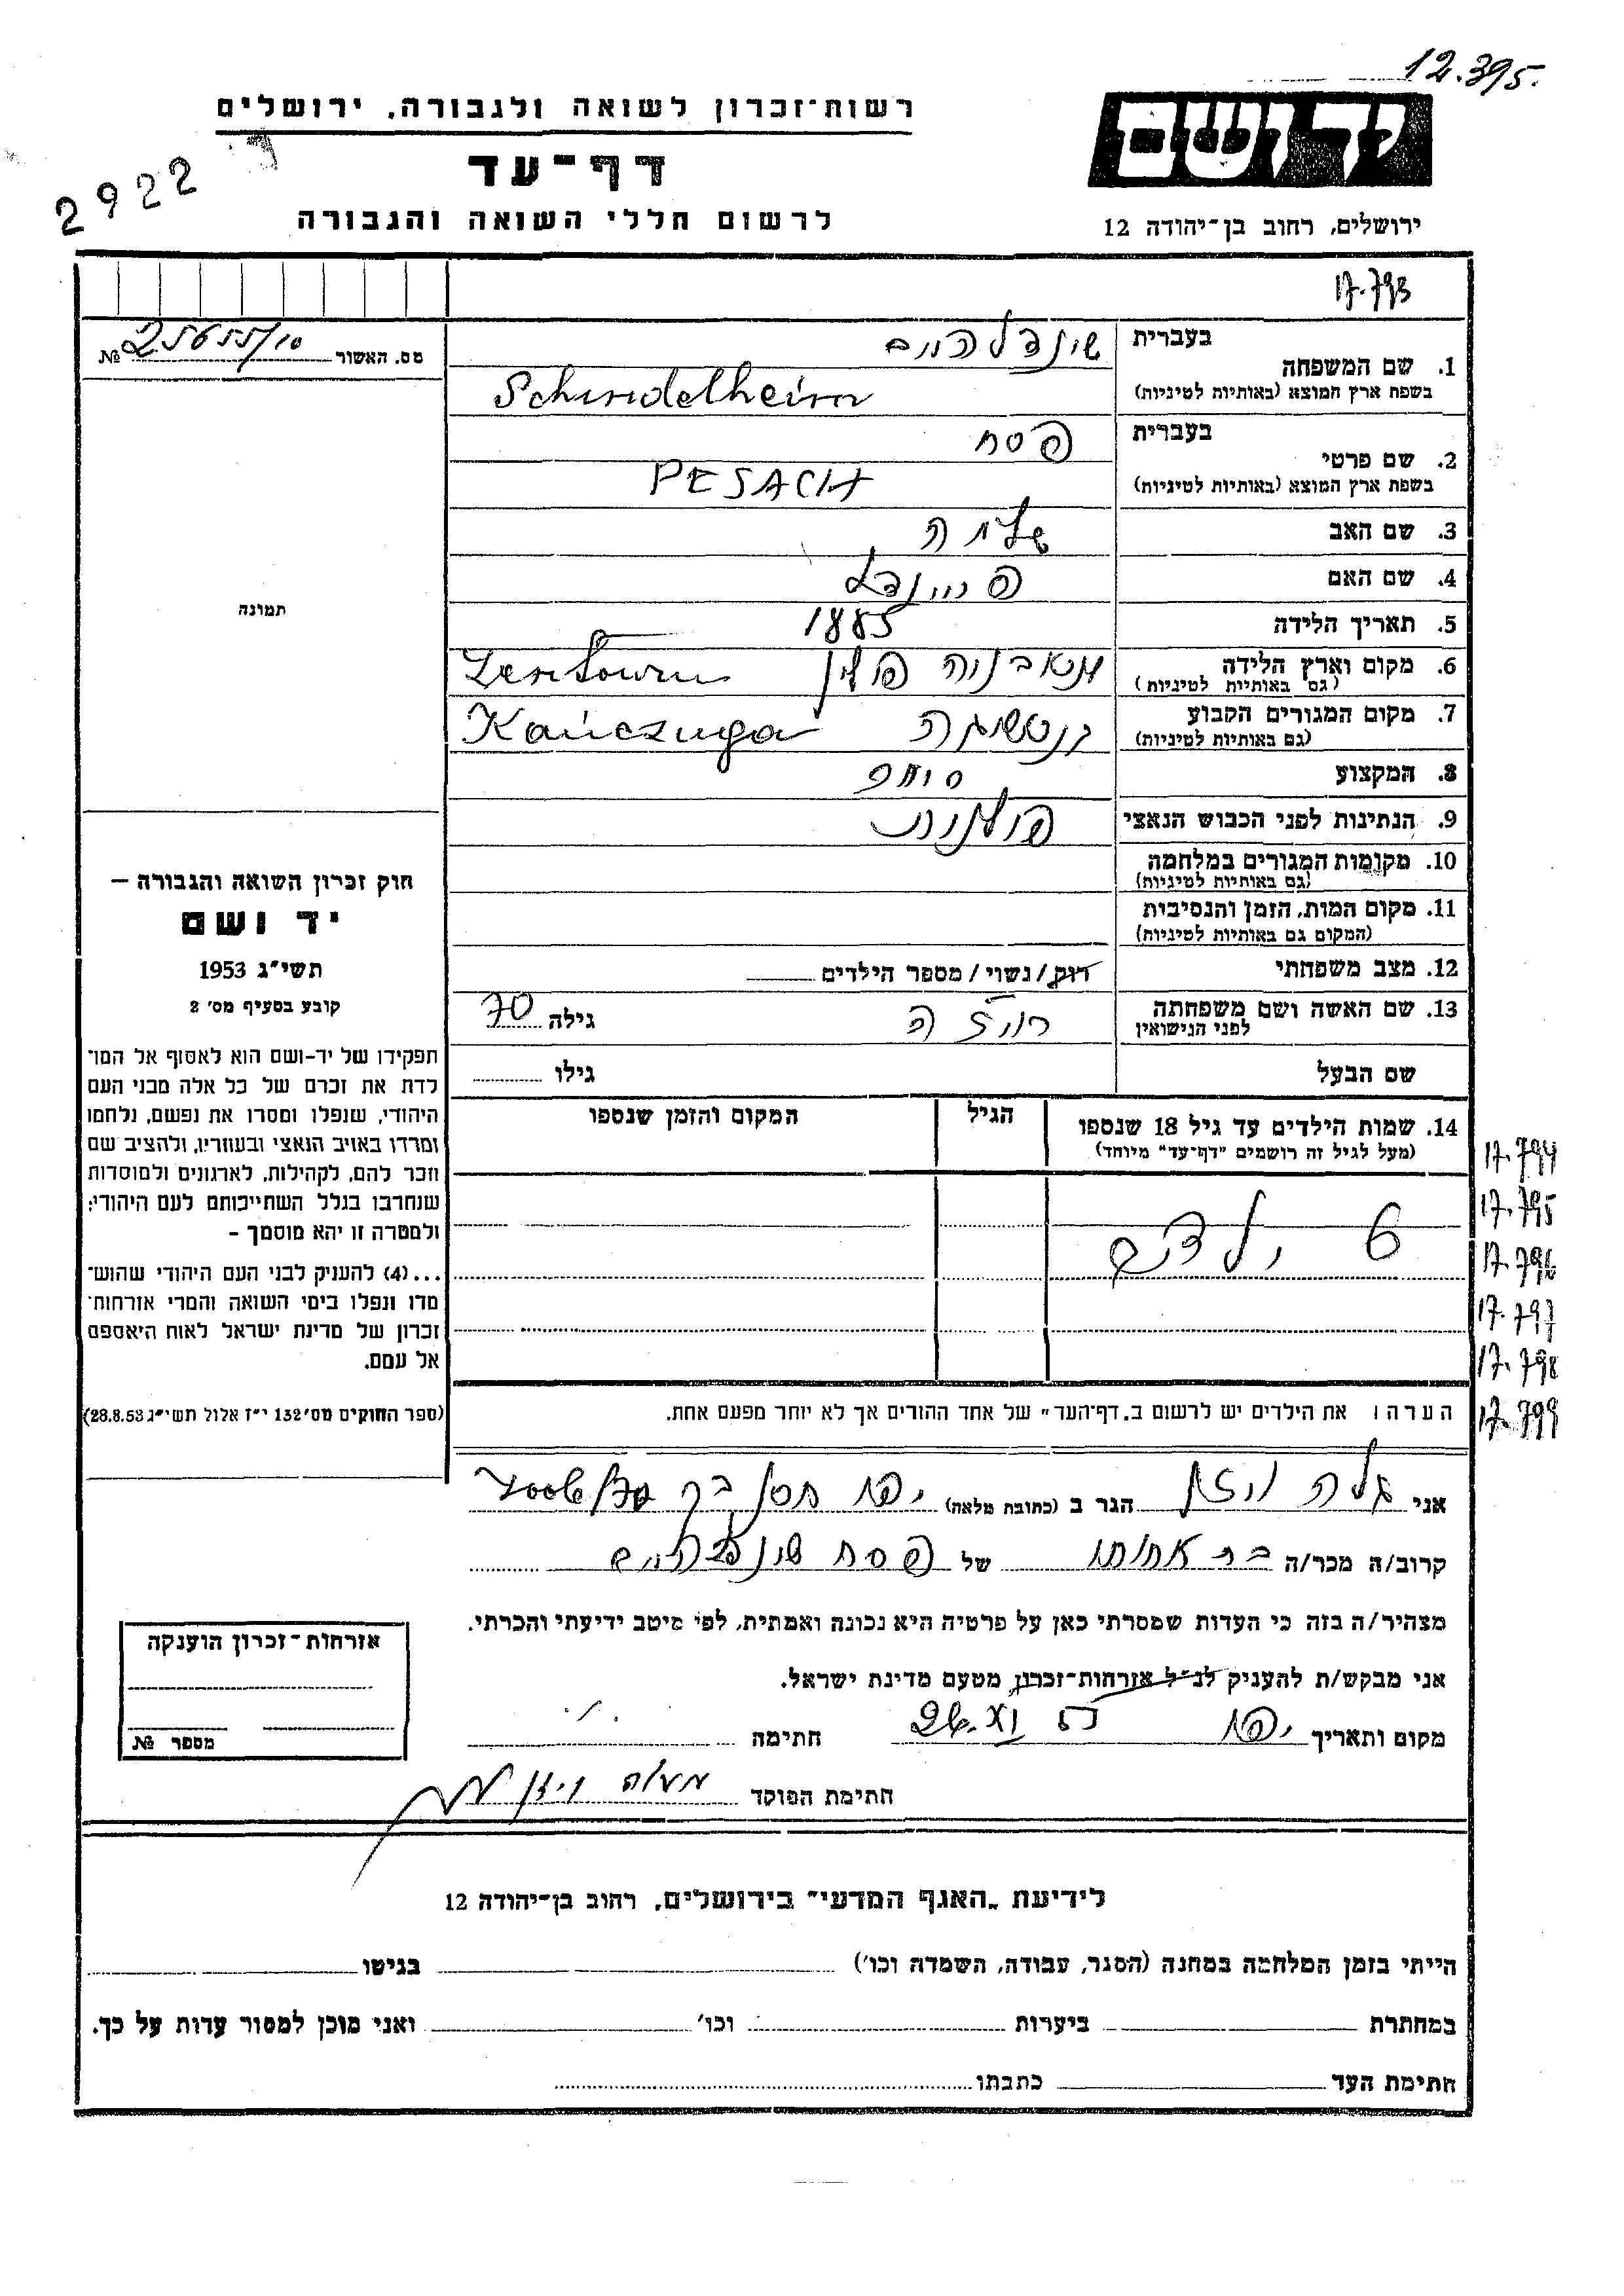 12.395.
יד ושם
רשות-זכרון לשואה ולגבורה, ירושלים
דף-עד
לרשום חללי השואה והגבורה
ירושלים, רחוב בן-יהודה 12
2922
17.793
מס. האשור № 25655/10
1. שם המשפחה
בעברית שינדלהיים
בשפת ארץ המוצא (באותיות לטיניות) Schindelheim
2. שם פרטי
בעברית פסח
בשפת ארץ המוצא (באותיות לטיניות) PESACH
3. שם האב שלמה
4. שם האם פיינדל
5. תאריך הלידה 1885
6. מקום וארץ הלידה (גם באותיות לטיניות) פולין
7. מקום המגורים הקבוע (גם באותיות לטיניות) Kańczuga
8. המקצוע סוחר
9. הנתינות לפני הכבוש הנאצי פולנית
10. מקומות המגורים במלחמה (גם באותיות לטיניות)
11. מקום המות, הזמן והנסיבות (המקום גם באותיות לטיניות)
12. מצב משפחתי רווק/נשוי/מספר הילדים
13. שם האשה ושם משפחתה לפני הנישואין רויזה גילה 70
שם הבעל גילו
14. שמות הילדים עד גיל 18 שנספו הגיל המקום והזמן שנספו
(מעל לגיל זה רושמים "דף-עד" מיוחד)
6 ילדים
17.794
17.795
17.796
17.797
17.798
17.799
הערה: את הילדים יש לרשום ב„דף-העד" של אחד ההורים אך לא יותר מפעם אחת.
תמונה
חוק זכרון השואה והגבורה –
יד ושם
תשי"ג 1953
קובע בסעיף מס' 2
תפקידו של יד-ושם הוא לאסוף אל המו־
לדת את זכרם של כל אלה מבני העם
היהודי, שנפלו ומסרו את נפשם, נלחמו
ומרדו באויב הנאצי ובעוזריו, ולהציב שם
וזכר להם, לקהילות, לארגונים ולמוסדות
שנחרבו בגלל השתייכותם לעם היהודי;
ולמטרה זו יהא מוסמך –
...(4) להעניק לבני העם היהודי שהוש־
מדו ונפלו בימי השואה והמרי אזרחות־
זכרון של מדינת ישראל לאות היאספם
אל עמם.
(ספר החוקים מס' 132 י"ז אלול תשי"ג 28.8.53)
אני הגר ב (כתובת מלאה) יפו
קרוב/ה מכר/ה בת אחותו של פסח שינדלהיים
מצהיר/ה בזה כי העדות שמסרתי כאן על פרטיה היא נכונה ואמתית, לפי מיטב ידיעתי והכרתי.
אני מבקש/ת להעניק לנ"ל אזרחות-זכרון מטעם מדינת ישראל.
מקום ותאריך יפו חתימה
חתימת הפוקד
אזרחות-זכרון הוענקה
מספר №
לידיעת „האגף המדעי" בירושלים, רחוב בן-יהודה 12
הייתי בזמן המלחמה במחנה (הסגר, עבודה, השמדה וכו') בגיטו
במחתרת ביערות וכו' ואני מוכן למסור עדות על כך.
חתימת העד כתבתו